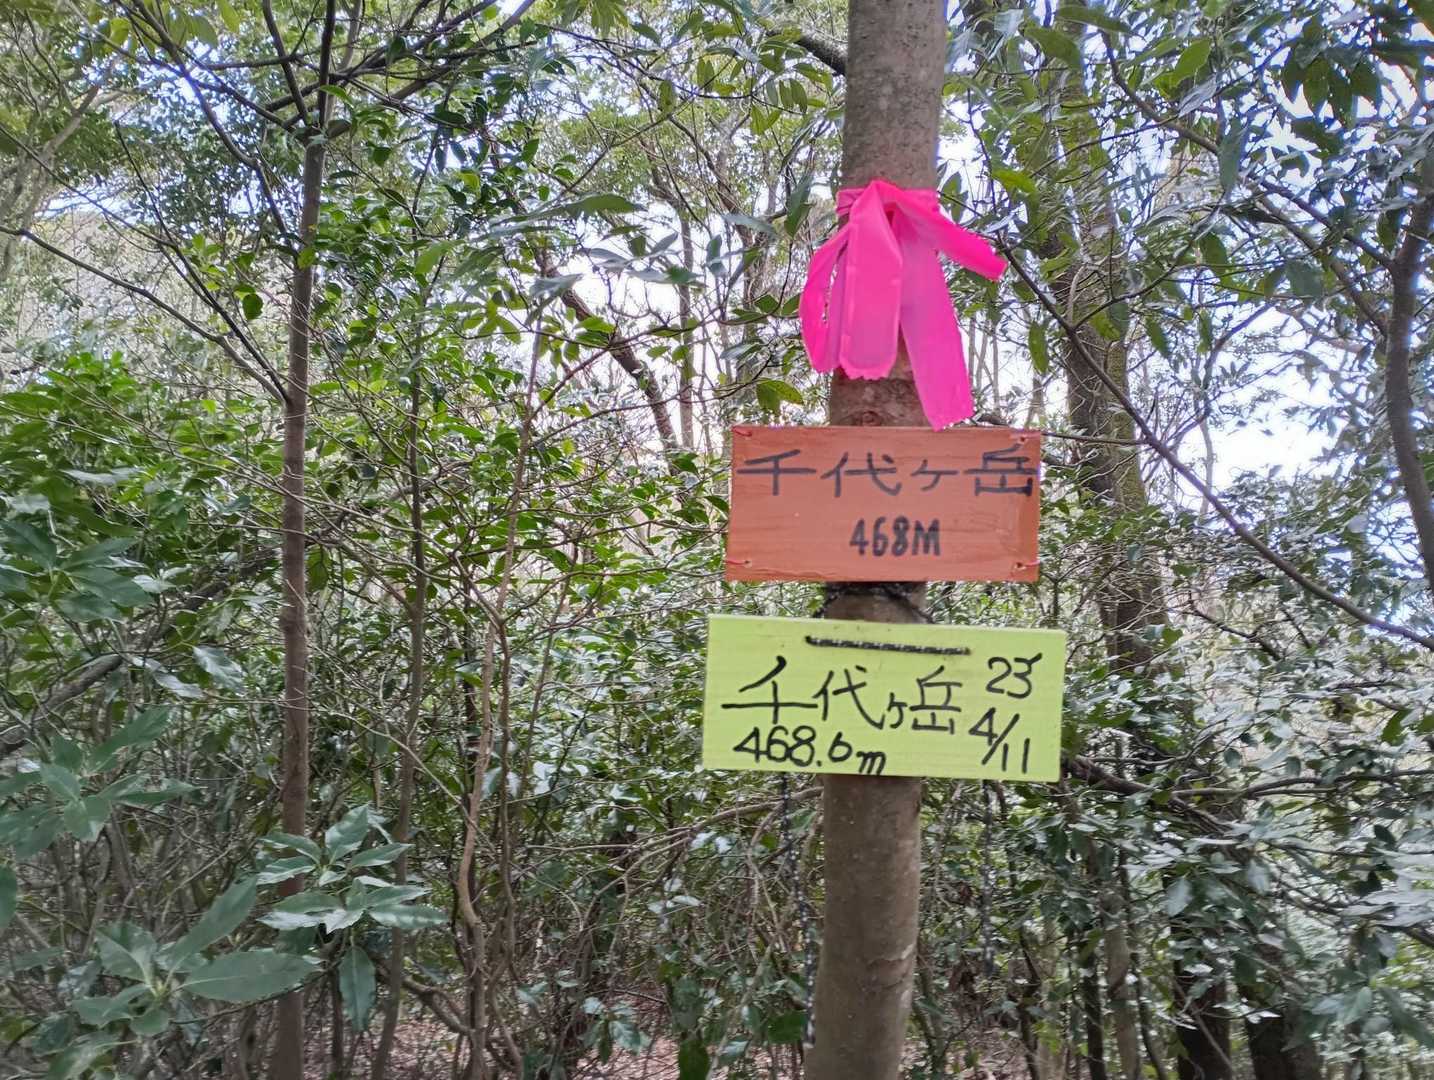 千代ヶ岳
468M
千代ヶ岳
468.6m
23
4/11